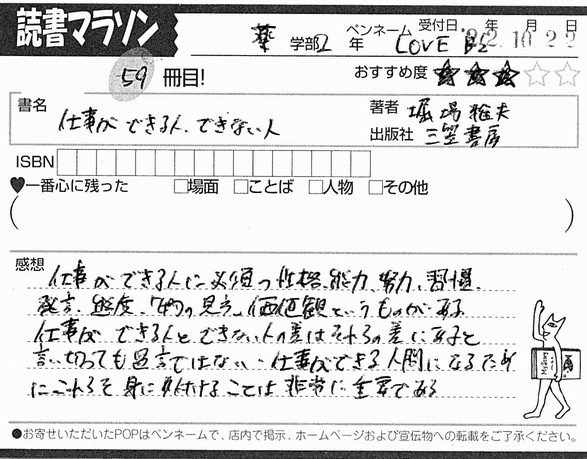 読書マラソン
薬 学部2年 ペンネーム LOVE B'z 受付日. 22.10.22 年 月 日
59 冊目! おすすめ度 ★★★☆☆
書名 仕事ができる人、できない人
著者 堀場雅夫
出版社 三笠書房
ISBN
♥一番心に残った □場面 □ことば □人物 □その他
( )
感想 仕事ができる人に必須の性格、能力、努力、習慣、
発言、態度、物の見方、価値観というものがある
仕事ができる人とできない人の差はそれらの差にあると
言い切っても過言ではない。仕事ができる人間になるため
にこれらを身に付けることは非常に重要である
●お寄せいただいたPOPはペンネームで、店内で掲示、ホームページおよび宣伝物への転載をご了承ください。